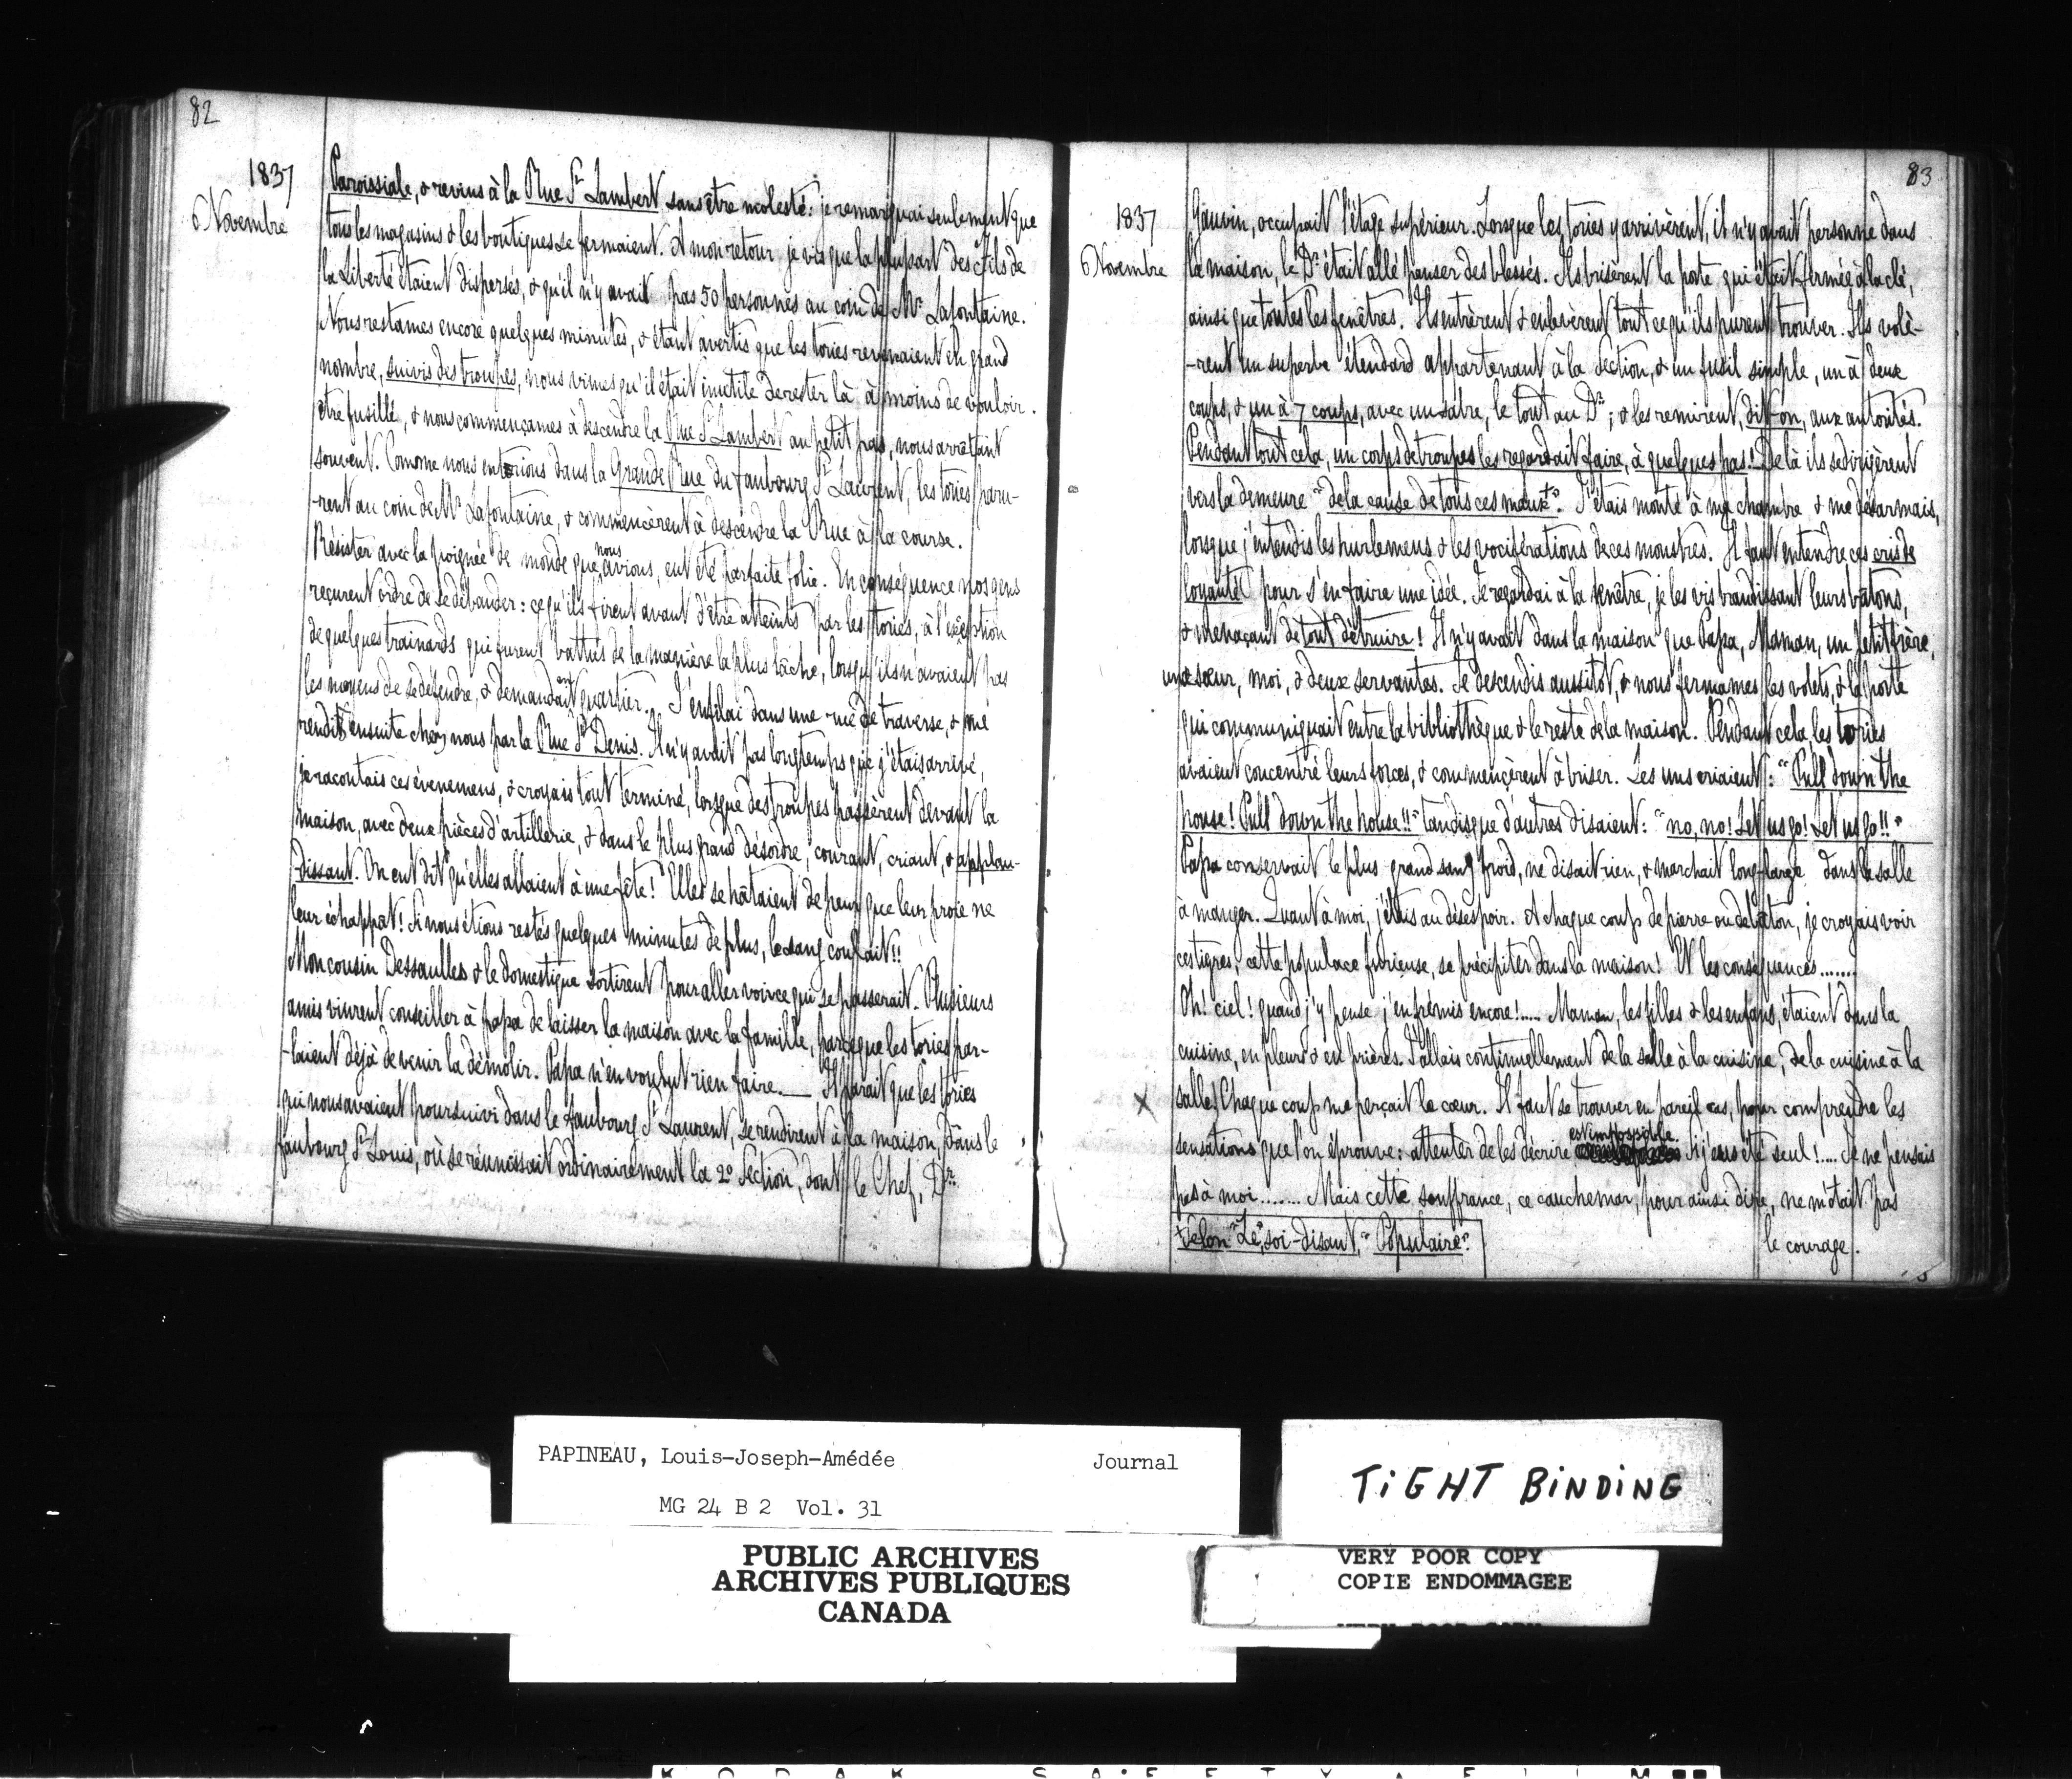 82
1837
Novembre
Paroissiale, & revins à la Rue St Lambert sans être molesté: je remarquai seulement que
tous les magasins & les boutiques se fermaient. A mon retour je vis que la plupart des Fils de
la Liberté étaient dispersés, & qu'il n'y avait pas 50 personnes au coin de Mr Lafontaine.
Nous restames encore quelques minutes, & étant avertis que les tories revenaient en grand
nombre, suivis des troupes, nous vimes qu'il était inutile de rester là à moins de vouloir
être fusillé, & nous commençames à descendre la Rue St Lambert au petit pas, nous arrêtant
souvent. Comme nous entrions dans la Grande Rue du faubourg St Laurent, les tories paru-
-rent au coin de Mr Lafontaine, & commencèrent à descendre la Rue à la course.
Résister avec la poignée de monde que nous avions, eut été parfaite folie. En conséquence nos gens
reçurent ordre de se débander: ce qu'ils firent avant d'être atteints par les tories, à l'exception
de quelques trainards qui furent battus de la manière la plus lâche, lorsqu'ils n'avaient pas
les moyens de se défendre, & demandaient quartier. J'enfilai dans une rue de traverse, & me
rendis ensuite chez nous par la Rue St Denis. Il n'y avait pas longtemps que j'étais arrivé,
je racontais ces évenemens, & croyais tout terminé, lorsque des troupes passèrent devant la
maison, avec deux pièces d'artillerie, & dans le plus grand désordre, courant, criant, & applau-
-dissant. On eut dit qu'elles allaient à une fête! Elles se hâtaient de peur que leur proie ne
leur échappat! Si nous étions restés quelques minutes de plus, le sang coulait!!
Mon cousin Dessaulles & le domestique sortirent pour aller voir ce qui se passerait. Plusieurs
amis vinrent conseiller à papa de laisser la maison avec la famille, parceque les tories par-
-laient déjà de venir la démolir. Papa n'en voulut rien faire. — Il parait que les tories
qui nous avaient poursuivi dans le faubourg St Laurent, se rendirent à la maison, dans le
faubourg St Louis, où se réunissait ordinairement la 2e Section, dont le Chef, Dr
83
1837
Novembre
Gauvin, occupait l'étage supérieur. Lorsque les tories y arrivèrent, il n'y avait personne dans
la maison, le Dr était allé penser des blessés. Ils brisèrent la porte qui était fermée à la clé,
ainsi que toutes les fenêtres. Ils entrèrent & enlevèrent tout ce qu'ils purent trouver. Ils volè-
-rent un superbe étendard appartenant à la section, & un fusil simple, un à deux
coups, & un à 7 coups, avec un sabre, le tout au Dr; & les remirent, dit-on, aux autorités.
Pendant tout cela, un corps de troupes les regardait faire, à quelques pas! De là ils se dirigèrent
vers la demeure "de la cause de tous ces maux+". J'étais monté à ma chambre & me désarmais,
lorsque j'entendis les hurlemens & les vociférations de ces monstres. Il faut entendre ces cris de
loyauté pour s'en faire une idée. Je regardai à la fenêtre, je les vis brandissant leurs batons,
& menaçant de tout détruire! Il n'y avait dans la maison que Papa, Maman, un petit frère,
une sœur, moi, & deux servantes. Je descendis aussitôt, & nous fermames les volets, & la porte
qui communiquait entre la bibliothèque & le reste de la maison. Pendant cela, les tories
avaient concentré leurs forces, & commençèrent à briser. Les uns criaient: "Pull down the
house! Pull down the house!!" tandis que d'autres disaient: "no, no! Let us go! Let us go!!"
Papa conservait le plus grand sang froid, ne disait rien, & marchait long & large dans la salle
à manger. Quant à moi, j'étais au désespoir. A chaque coup de pierre ou de baton, je croyais voir
ces tigres, cette populace furieuse, se précipiter dans la maison! Et les conséquences.......
Oh! ciel! quand j'y pense j'en frémis encore!..... Maman, les filles & les enfans, étaient dans la
cuisine, en pleurs & en prières. J'allais continuellement de la salle à la cuisine, de la cuisine à la
salle. Chaque coup me perçait le cœur. Il faut se trouver en pareil cas, pour comprendre les
X
sensations que l'on éprouve: attenter de les décrire est impossible. Si j'eus été seul!.... Je ne pensais
pas à moi........ Mais cette souffrance, ce cauchemar, pour ainsi dire, ne m'ôtait pas
le courage.
+Selon "Le, soi-disant, "Populaire".
PAPINEAU, Louis-Joseph-Amédée Journal
MG 24 B 2 Vol. 31
PUBLIC ARCHIVES
ARCHIVES PUBLIQUES
CANADA
TIGHT BINDING
VERY POOR COPY
COPIE ENDOMMAGEE
VERY POOR COPY
KODAK SAFETY FILM